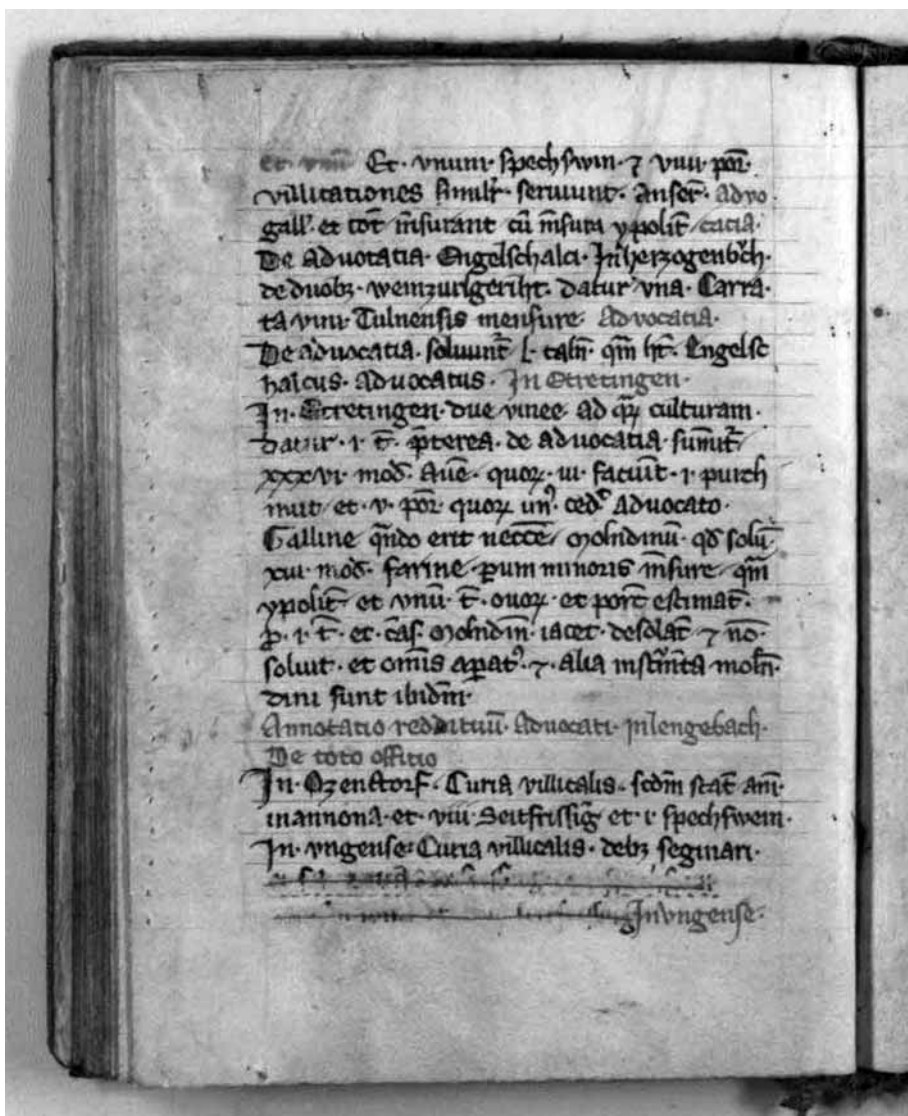 Et · vnum · spechswin · ⁊ vnu · por̄ ·
villicationes simil̄r · seruiunt · Anser̄ · advo
gall' · et tot̄ m̄surant cū m̄sura ypolit̄ / catia ·
De advocatia · Engelschalci · In herzogenb̄ch ·
de duobz · weinzurlgeriht · datur vna · Carra
ta vini · Tulnensis mensure · Advocatia ·
De advocatia · soluunt̄ · l · taln̄ · qm̄ ht̄ · Engelsc
halcus · Advocatus · In Etretingen ·
In · Etretingen · due vinee · ad qꝝ culturam ·
datur · i · t̄ · p̄terea · de advocatia · sumūt̄
xxxvi · mod̄ · Aūe · quoꝝ · iii · faciūt · i · purch
mut / et · v · por̄ · quoꝝ un' · ced̄ · Advocato ·
Galline q̄ndo erit necc̄e / Molndinū · qd̄ solū
xvi · mod̄ · farine / ꝑum minoris m̄sure / qm̄
ypolit̄ · et vnū · t̄ · ouoꝝ · et porc̄ estimat̄ ·
ꝑ · i · t̄ · et · cas̄ · Molndin̄ · iacet · desolat̄ ⁊ nō ·
soluit · et om̄is apat' · ⁊ · alia inst̄m̄ta moln̄
dini sunt ibidm̄ ·
Annotatio reddituū · Advocati · In lengebach ·
De toto offitio
In · Ozenstorf · Curia villicalis · scdm̄ stat̄ · ann̄ ·
in annona · et · viii · Seitfrissiḡ et · i · spechswein ·
In · vngense · Curia villicalis · debz seginari ·
In vngense ·